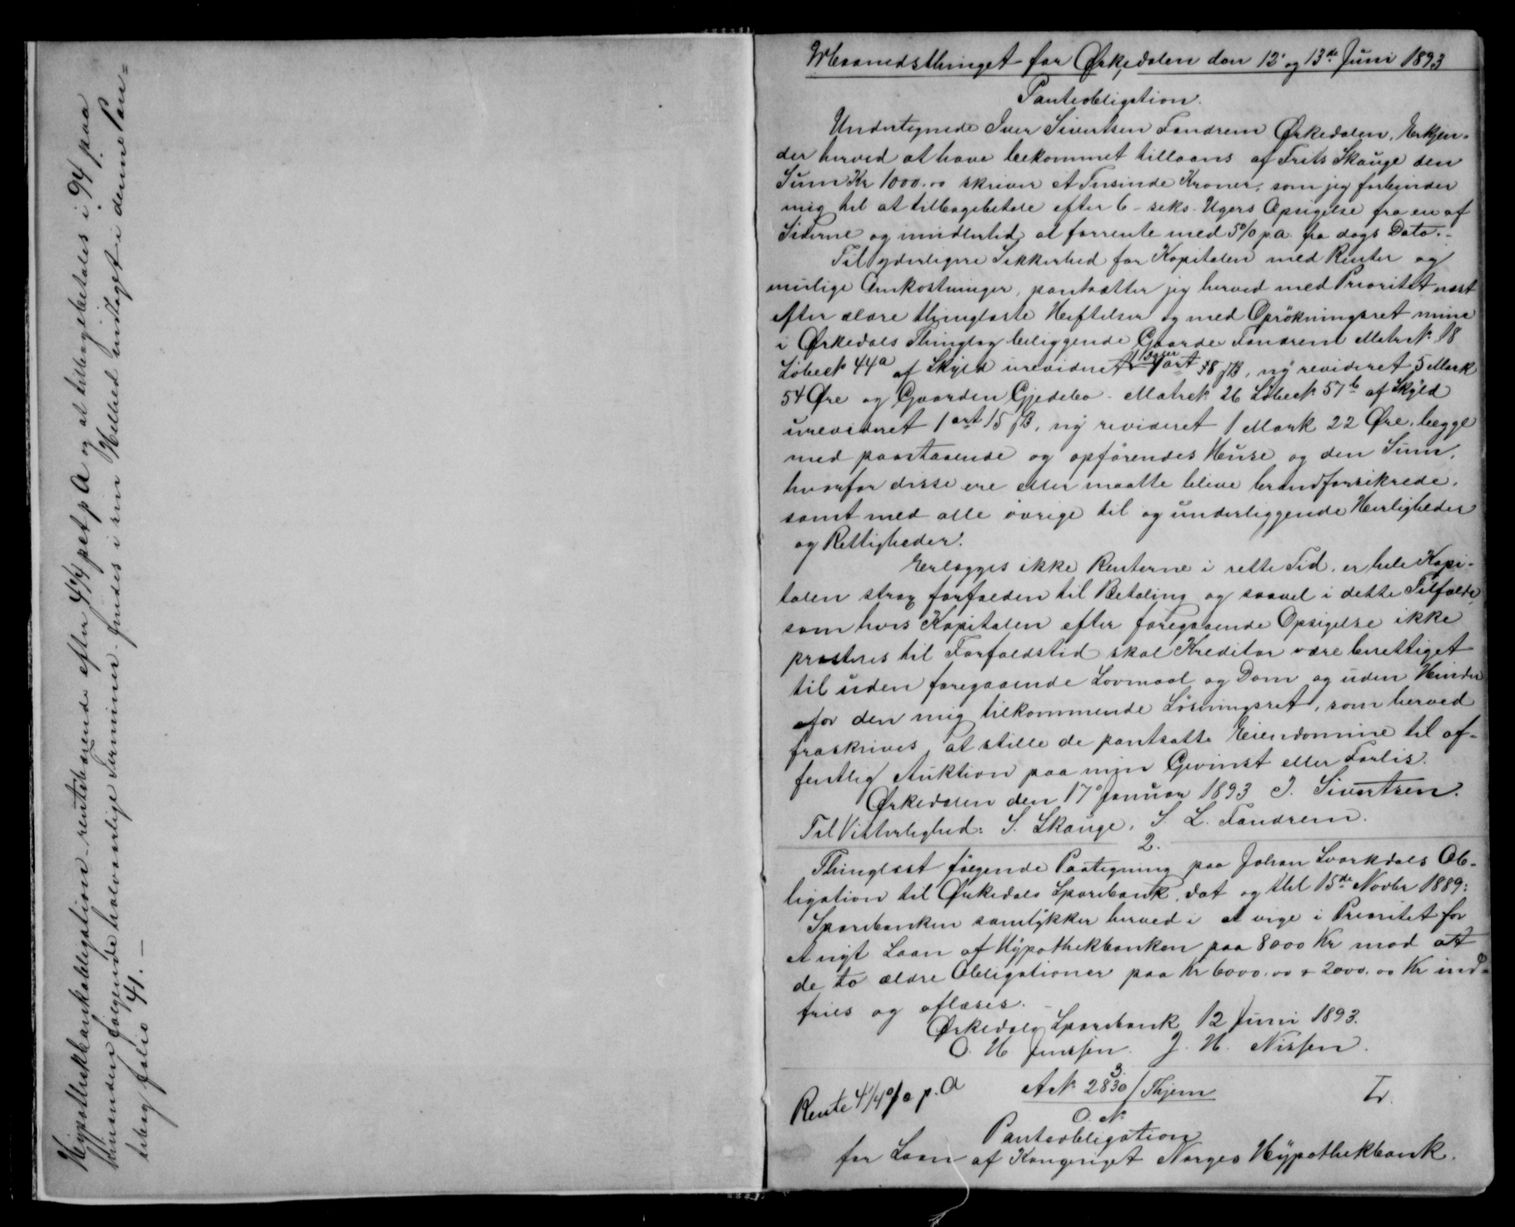 Hypothekbankobligation rentebærende efter 4 1/4 pct p A og at tilbagebetales i 94 paa
hinanden følgende halvaarlige Terminer findes i sin Helhed indtagt i denne Pan-
tebog folio 41. —
Maanedsthinget for Ørkedalen den 12' og 13de Juni 1893
Panteobligation.
Undertegnede Iver Sivertsen Fandrem Ørkedalen, Erkjen-
der herved at have bekommet tillaans af Frits Skauge den
Sum Kr 1000.00 skriver et Tusinde Kroner, som jeg forbinder
mig til at tilbagebetale efter 6 - seks Ugers Opsigelse fra en af
Siderne og imidlertid at forrente med 5% p.a. fra dags Dato.-
Til yderligere Sikkerhed for Kapitalen med Renter og
mulige Omkostninger, pantsætter jeg herved med Prioritet næst
efter ældre thinglæste Heftelser og med Oprykningsret mine
i Ørkedals Thinglag beliggende Gaarde Fandrem Matr № 18
Løbe № 44a af Skyld urevideret 1 Øre 18 ß, ny revideret 5 Mark
54 Øre og Gaarden Gjedebo Matr № 26 Løbe № 57b af Skyld
urevideret 1 ort 15 ß, ny revideret 1 Mark 22 Øre, begge
med paastaaende og opførendes Huse og den Sum,
hvorfor disse ere eller maatte blive brandforsikrede,
samt med alle øvrige til og underliggende Herligheder
og Rettigheder.
Erlægges ikke Renterne i rette Tid, er hele Kapi-
talen strax forfalden til Betaling og saavel i dette Tilfælde,
som hvis Kapitalen efter foregaaende Opsigelse ikke
præsteres til Forfaldstid skal Kreditor være berettiget
til uden foregaaende Lovmaal og Dom og uden Hinder
for den mig tilkommende Løsningsret, som herved
fraskrives, at stille de pantsatte Eiendomme til of-
fentlig Auktion paa min Gevinst eller Forlis.
Ørkedalen den 17' Januar 1893 I. Sivertsen.
Til Vitterlighed: S. Skauge. S. L. Fandrem.
2.
Thinglæst følgende Paategning paa Johan Svorkdals Ob-
ligation til Ørkedals Sparebank, dat og thl 15de Novbr 1889:
Sparebanken samtykker herved i at vige i Prioritet for
et nyt Laan af Hypothekbanken paa 8000 Kr mod at
de to ældre Obligationer paa Kr 6000.00 & 2000.00 Kr ind-
fries og aflæses.
Ørkedals Sparebank 12 Juni 1893.
O. H. Jenssen. J. H. Nissen.
3.
Rente 4 1/4 % p. a A № 2830 / Thjem Tr.
O. №
Panteobligation
for Laan af Kongeriget Norges Hypothekbank.